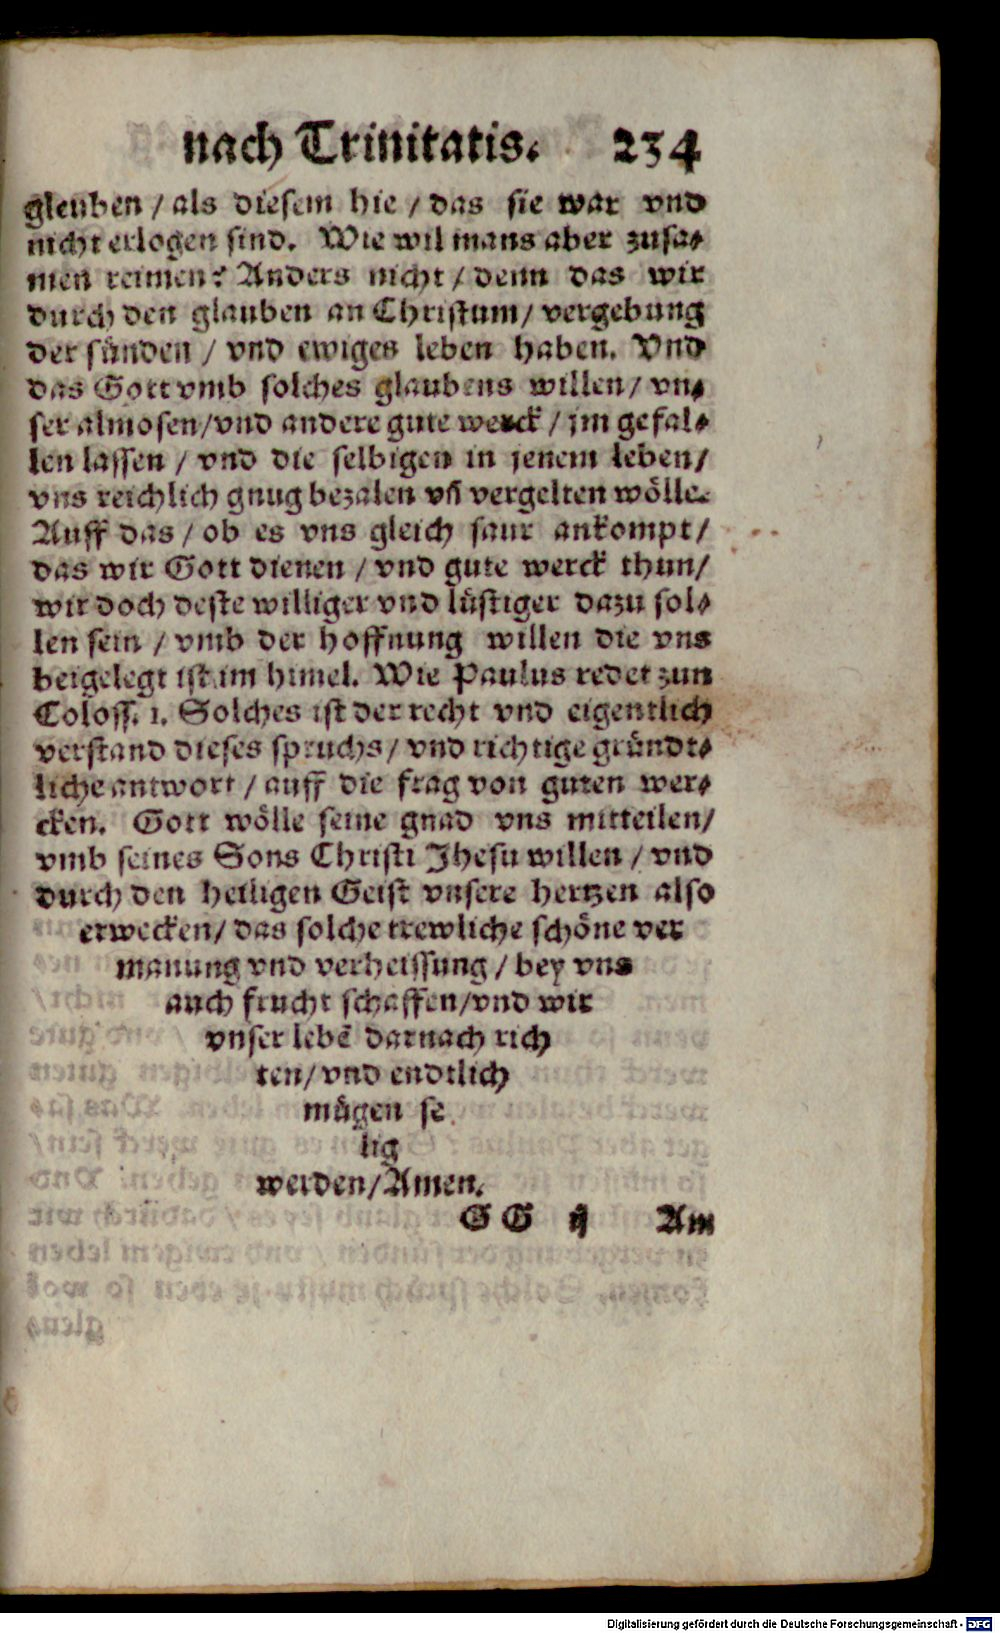 nach Trinitatis. 234
gleuben / als diesem hie / das sie war vnd
nicht erlogen sind. Wie wil mans aber zusa⸗
men reimen? Anders nicht / denn das wir
durch den glauben an Christum / vergebung
der sünden / vnd ewiges leben haben. Vnd
das Gott vmb solches glaubens willen / vn⸗
ser almosen / vnd andere gute werck / jm gefal⸗
len lassen / vnd die selbigen in jenem leben /
vns reichlich gnug bezalen vñ vergelten wölle.
Auff das / ob es vns gleich saur ankompt /
das wir Gott dienen / vnd gute werck thun /
wir doch deste williger vnd lüstiger dazu sol⸗
len sein / vmb der hoffnung willen die vns
beigelegt ist im himel. Wie Paulus redet zun
Coloss. 1. Solches ist der recht vnd eigentlich
verstand dieses spruchs / vnd richtige gründt⸗
liche antwort / auff die frag von guten wer⸗
cken. Gott wölle seine gnad vns mitteilen /
vmb seines Sons Christi Jhesu willen / vnd
durch den heiligen Geist vnsere hertzen also
erwecken / das solche trewliche schöne ver
manung vnd verheissung / bey vns
auch frucht schaffen / vnd wir
vnser lebē darnach rich
ten / vnd endtlich
mügen se
lig
werden / Amen.
GG ij Am
Digitalisierung gefördert durch die Deutsche Forschungsgemeinschaft - DFG